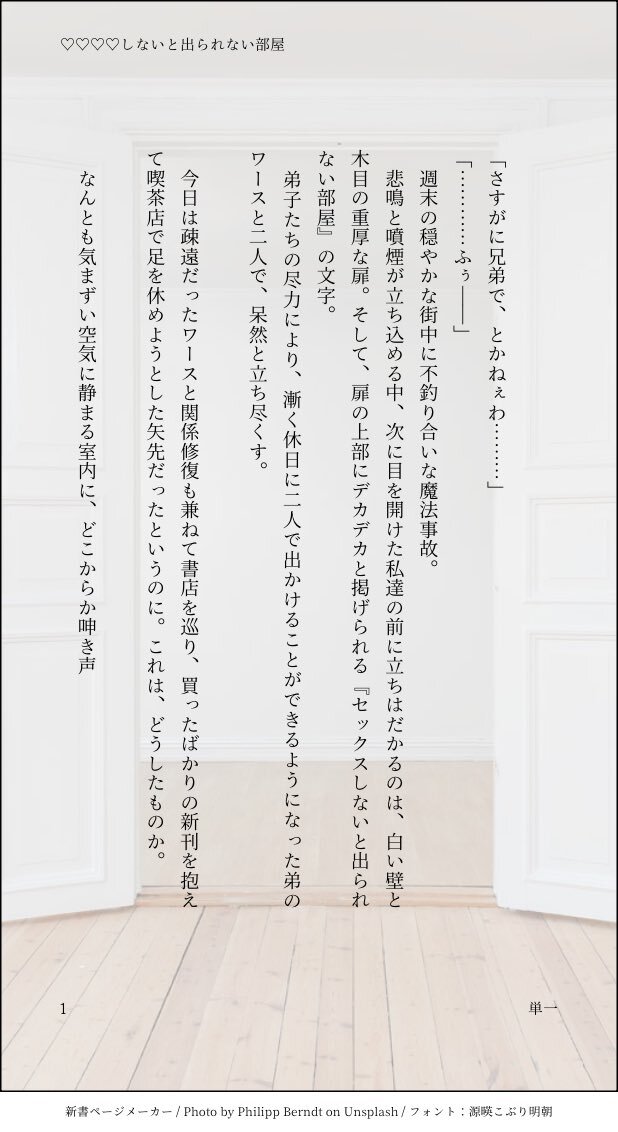 ♡♡♡♡しないと出られない部屋
「さすがに兄弟で、とかねぇわ………」
「…………ふぅ――」
週末の穏やかな街中に不釣り合いな魔法事故。
悲鳴と噴煙が立ち込める中、次に目を開けた私達の前に立ちはだかるのは、白い壁と
木目の重厚な扉。そして、扉の上部にデカデカと掲げられる『セックスしないと出られ
ない部屋』の文字。
弟子たちの尽力により、漸く休日に二人で出かけることができるようになった弟の
ワースと二人で、呆然と立ち尽くす。
今日は疎遠だったワースと関係修復も兼ねて書店を巡り、買ったばかりの新刊を抱え
て喫茶店で足を休めようとした矢先だったというのに。これは、どうしたものか。
なんとも気まずい空気に静まる室内に、どこからか呻き声
1
単一
新書ページメーカー / Photo by Philipp Berndt on Unsplash / フォント：源暎こぶり明朝